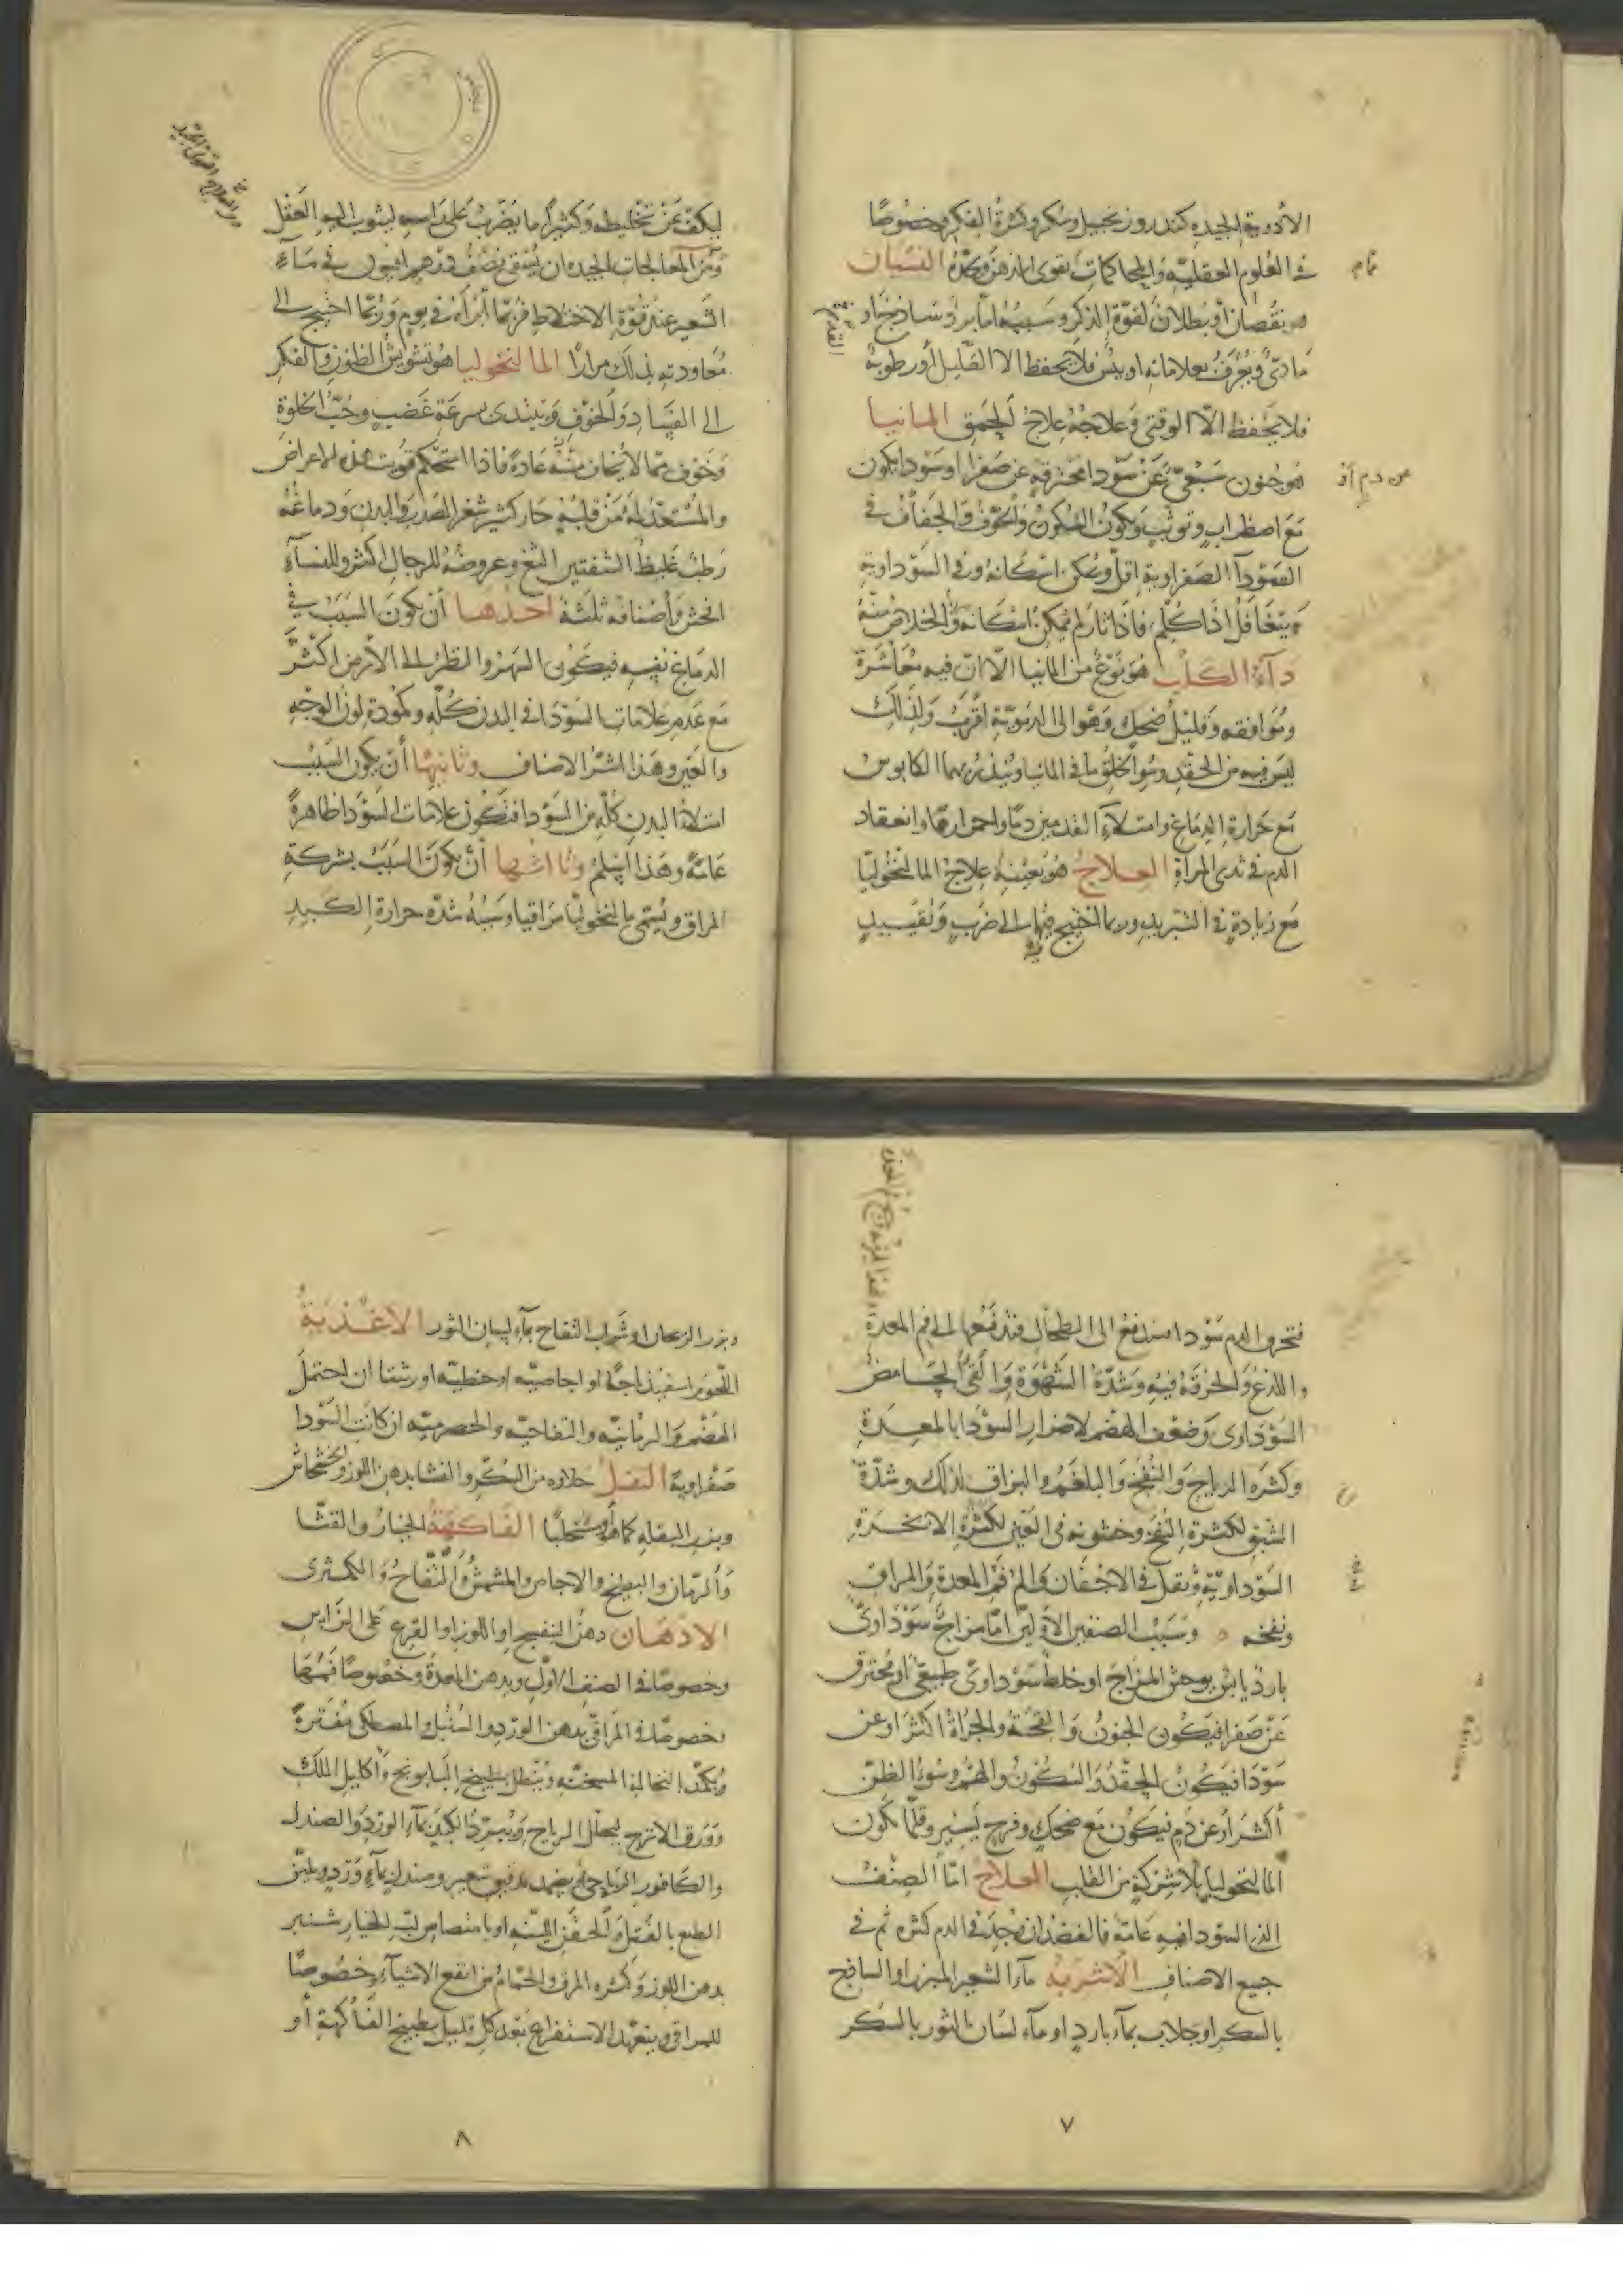 الأدوية الجيدة كندر وزنجبيل وسكر وكثرة الفكر وخصوصًا
في العلوم العقلية والمحاكمات يقوى الذهن ويحده النسيان
هو نقصان أو بطلان لقوة الذكر وسببه اما برد ساذج او
مادي ويعرف بعلاماته او يبس فلا يحفظ الا القليل أو رطوبة
فلا يحفظ الا الوقتي وعلاجه علاج الحمق المانيا
هو جنون سبعي عن سودا محترقة عن صفرا او سودا يكون
مع اضطراب وتوثب ويكون السكون والخوف والجفاف في
السودآ الصفراوية اقل ويمكن اسكاته وفي السوداوية
يتغافل اذا كلم فاذا ثار لم يمكن اسكاته والخلاص منه
دآء الكلب هو نوع من المانيا الا ان فيه معاشرة
وموافقه وقليل ضحك وهو الى الدموية اقرب ولذلك
ليس فيه من الحقد وسوا الخلق ما في المانيا وينذر بهما الكابوس
مع حرارة الدماغ وامتلاء القدمين دمًا واحمرارهما وانعقاد
الدم في ثدي المراة العلاج هو بعينه علاج المالنخوليا
مع زيادة في التبريد وربما احتيج فيها الى ضرب وتقييد
تمام
عن دم أو
ليكف عن تخليطه وكثيرًا ما يضرب على راسه ليثوب اليه العقل
ومن المعالجات الجيدة ان يسقى نصف درهم افيون في مآء
الشعير عند قوة الاختلاط فربما أبرأه في يوم وربما احتيج الى
معاودته بذلك مرارًا المالنخوليا هو تشويش الظنون والفكر
الى الفساد والخوف ويبتدى بسرعة غضب وحب الخلوة
وخوف مما لا يخاف منه عادة فاذا استحكم قويت هذه الاعراض
والمستعد له من قلبه حار كثير شعر الصدر والبدن ودماغه
رطب غليظ الشفتين الثغ وعروضه للرجال اكثر وللنسآء
افحش وأصنافه ثلثة احدها أن يكون السبب في
الدماغ نفسه فيكون السهر والنظر الى الأرض اكثر
مع عدم علامات السودا في البدن كله وكمودة لون الوجه
والعين وهذا اشر الاصناف وثانيها أن يكون السبب
امتلاء البدن كله من السودا فتكون علامات السودا ظاهرة
عامة وهذا اسلم وثالثها أن يكون السبب بشركة
المراق ويسمى مالنخوليا مراقيا وسببه شدة حرارة الكبد
فتحرق الدم سودا مندفع الى الطحال فتدفعها الى فم المعدة
واللذع والحرقة فيه وشدة الشهوة والقي الحامض
السوداوى وضعف الهضم لاضرار السودا بالمعدة
وكثرة الرياح والنفخ والبلغم والبزاق لذلك وشدة
الشبق لكثرة النفخ وخشونه في العين لكثرة الابخرة
السوداوية وثقل في الاجفان والم في المعدة والمراق
ونفخه وسبب الصنفين الأولين اما مزاج سوداوي
بارد يابس يوحش المزاج او خلط سوداوي طبيعي او محترق
عن صفرا فيكون الجنون والقحة والجراة اكثر او عن
سودا فيكون الحقد والسكون والهم وسوء الظن
أكثر أو عن دم فيكون مع ضحك وفرح يسير وقلما يكون
المالنخوليا بلا شركة من القلب العلاج اما الصنف
الذي السودا فيه عامة فالفصد ان وجد في الدم كثرة ثم في
جميع الاصناف الأشربة مآء الشعير المبزر او الساذج
بالسكر او جلاب بمآء بارد او مآء لسان الثور بالسكر
٧
وبزر الريحان او شراب التفاح بمآء لسان الثور الاغذية
اللحوم اسفيذباجًا او اجاصية او حنطية او رشتا ان احتمل
الهضم والرمانية والتفاحية والحصرمية ان كانت السودا
صفراوية النقل حلاوة من السكر والنشا بدهن اللوز والخشخاش
وبزر البقله كما هو أو مستحلبًا الفاكهة الخيار والقثا
والرمان والبطيخ والاجاص والمشمش والتفاح والكمثرى
الادهان دهن البنفسج او اللوز او القرع على الراس
وخصوصًا في الصنف الاول ويدهن المعدة وخصوصًا فمها
وخصوصًا في المراقي بدهن الورد والسنبل والمصطكى مفترة
ويكمد بالنخالة المسخنة وينطل بطبيخ البابونج واكليل الملك
وورق الاترج ليحلل الرياح ويبرد الكبد بمآء الورد والصندل
والكافور الرياحي أو يضمد بدقيق شعير وصندل بمآء ورد ويلين
الطبع بالفتل والحقن اللينة او بامتصاص لب الخيار شنبر
بدهن اللوز وكثرة المرق والحمام من انفع الاشيآء وخصوصًا
للمراقي ويتعهد الاستفراغ بعد كل قليل بطبيخ الفاكهة أو
٨